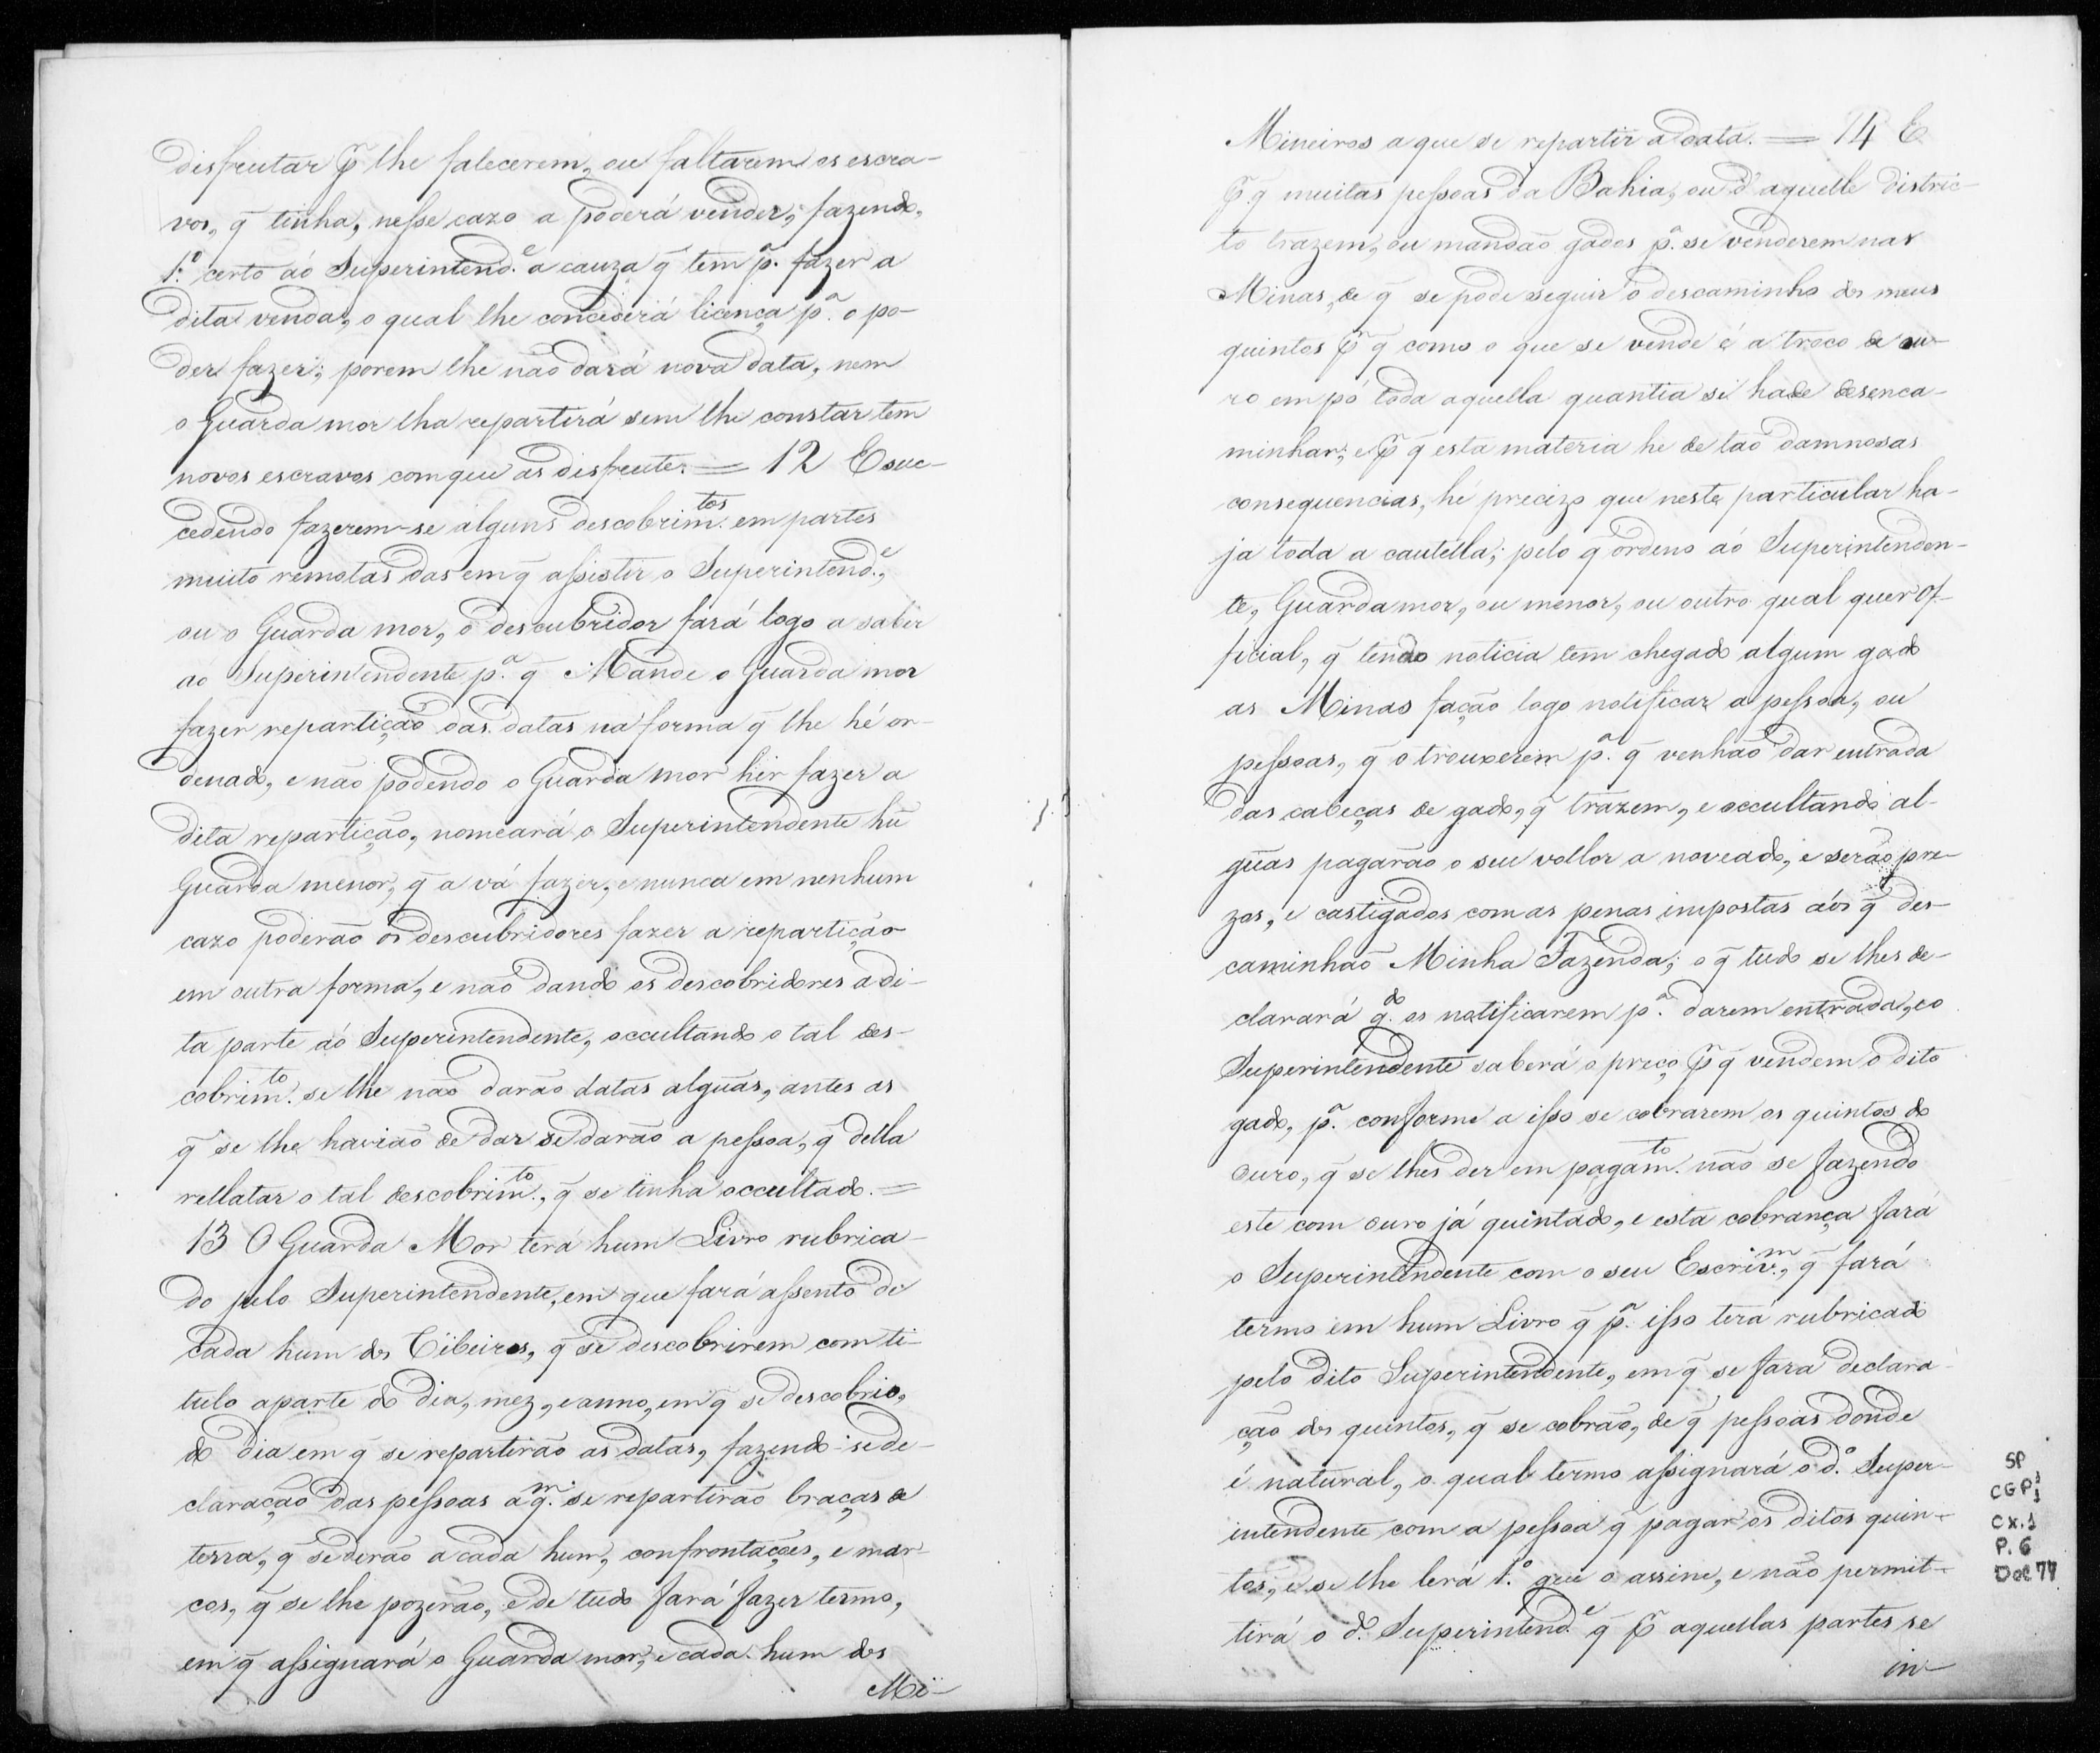 disfrutar p̃ lhe falecerem, ou faltarem os escra-
vos, q̃ tinha, nesse cazo a poderá vender, fazendo,
1.º certo áo Superintend.e a cauza q̃ tem p.a fazer a
dita venda, o qual lhe concederá licença p.a o po-
der fazer; porem lhe não dará nova data, nem
o Guarda mor lha repartirá sem lhe constar tem
novos escravos com que as disfrute. = 12 E suc-
cedendo fazerem-se alguns descobrim.tos em partes
muito remotas das em q̃ assistir o Superintend.e,
ou o Guarda mor, o descubridor fará logo a saber
ao Superintendente p.a q̃ Mande o Guarda mor
fazer repartição das datas na forma q̃ lhe hé or-
denado, e não podendo o Guarda mor hir fazer a
dita repartição, nomeará o Superintendente hũ
Guarda menor, q̃ a vá fazer, e nunca em nenhum
cazo poderão os descubridores fazer a repartição
em outra forma, e não dando os descobridores a di-
ta parte áo Superintendente, occultando o tal des-
cobrim.to se lhe não darão datas algũas, antes as
q̃ se lhe havião de dar se darão a pessoa, q̃ della
rellatar o tal descobrim.to, q̃ se tinha occultado. =
13 O Guarda Mor terá hum Livro rubrica-
do pelo Superintendente, em que fará assento de
cada hum dos Ribeiros, q̃ se descobrirem com ti-
tulo aparte do dia, mez, e anno, em q̃ se descobrio,
do dia em q̃ se repartirão as datas, fazendo-se de-
claração das pessoas a q.m se repartirão braças de
terra, q̃ se derão a cada hum, confrontações, e mar-
cos, q̃ se lhe pozerão, e de tudo fará fazer termo,
em q̃ assignará o Guarda mor, e cada hum dos
Mi-
Mineiros a que se repartir a data. = 14 E
p̃ q̃ muitas pessoas da Bahia, ou d'aquelle distric-
to trazem, ou mandão gados p.a se venderem nas
Minas, de q̃ se pode seguir o descaminho dos meus
quintos p̃ q̃ como o que se vende é a troco de ou-
ro em pó toda aquella quantia se hade desenca-
minhar; e p̃ q̃ esta materia he de tão damnosas
consequencias, hé precizo que neste particular ha-
ja toda a cautella; pelo q̃ ordeno áo Superintenden-
te, Guarda mor, ou menor, ou outro qual quer Of-
ficial, q̃ tendo noticia tem chegado algum gado
as Minas fação logo notificar a pessoa, ou
pessoas, q̃ o trouxerem p.a q̃ venhão dar entrada
das cabeças de gado, q̃ trazem, e occultando al-
gũas pagarão o seu vallor a noveado, e serão pre-
zos, e castigados com as penas impostas áos q̃ des-
caminhão Minha Fazenda; o q̃ tudo se lhes de-
clarará q.do os notificarem p.a darem entrada, e o
Superintendente saberá o preço p̃ q̃ vendem o dito
gado, p.a conforme a isso se cobrarem os quintos do
ouro, q̃ se lhes der em pagam.to não se fazendo
este com ouro já quintado, e esta cobrança fará
o Superintendente com o seu Escriv.m, q̃ fará
termo em hum Livro q̃ p.a isso terá rubricado
pelo dito Superintendente, em q̃ se fara declara-
ção dos quintos, q̃ se cobrão, de q̃ pessoas donde
é natural, o qual termo assignará o d.º Super-
intendente com a pessoa q̃ pagar os ditos quin-
tos, e se lhe lerá 1.º que o assine, e não permit-
tirá o d.º Superintend.e q̃ p̃ aquellas partes se
in-
SP
CGP 1
Cx. 1
P. 6
Doc 77